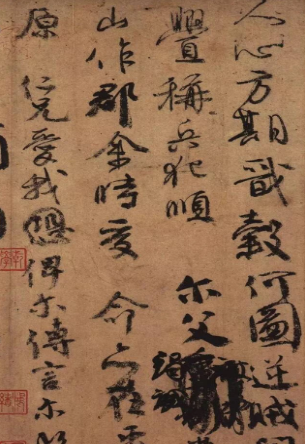 人心方期戩穀何圖逆賊
舋稱兵犯順尔父竭誠
山作郡余時受命亦在平
原仁兄愛我俾尔傳言尔